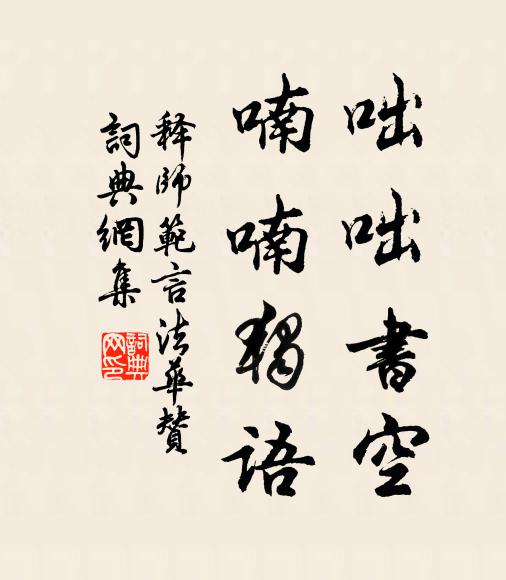 咄咄書空
喃喃獨語
释師範言法華赞
詞典網集
詞典
网印